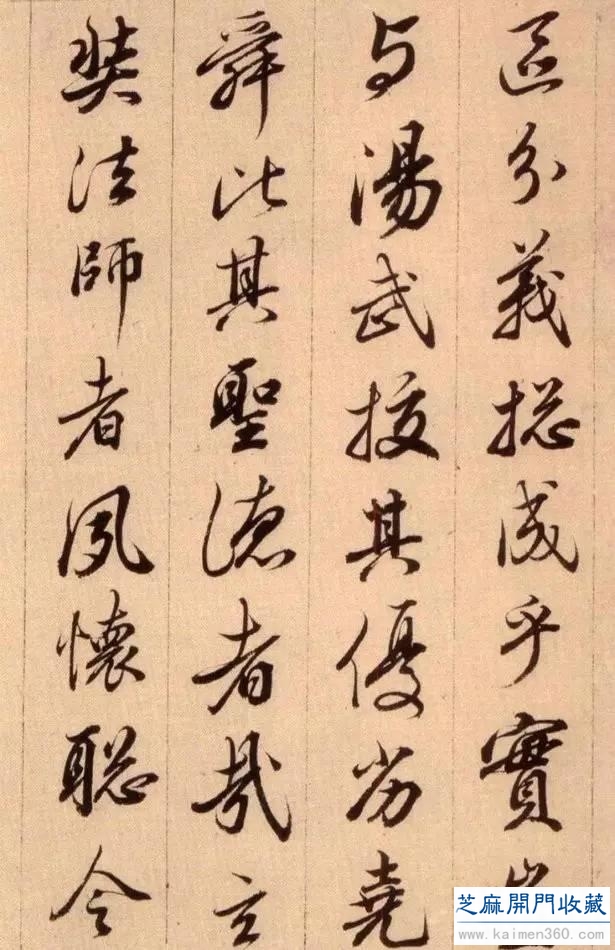 區分義捴成乎實
与湯武挍其優劣堯
舜比其聖德者哉玄
奘法師者夙懷聰令
芝麻開門收藏
www.kaimen360.com